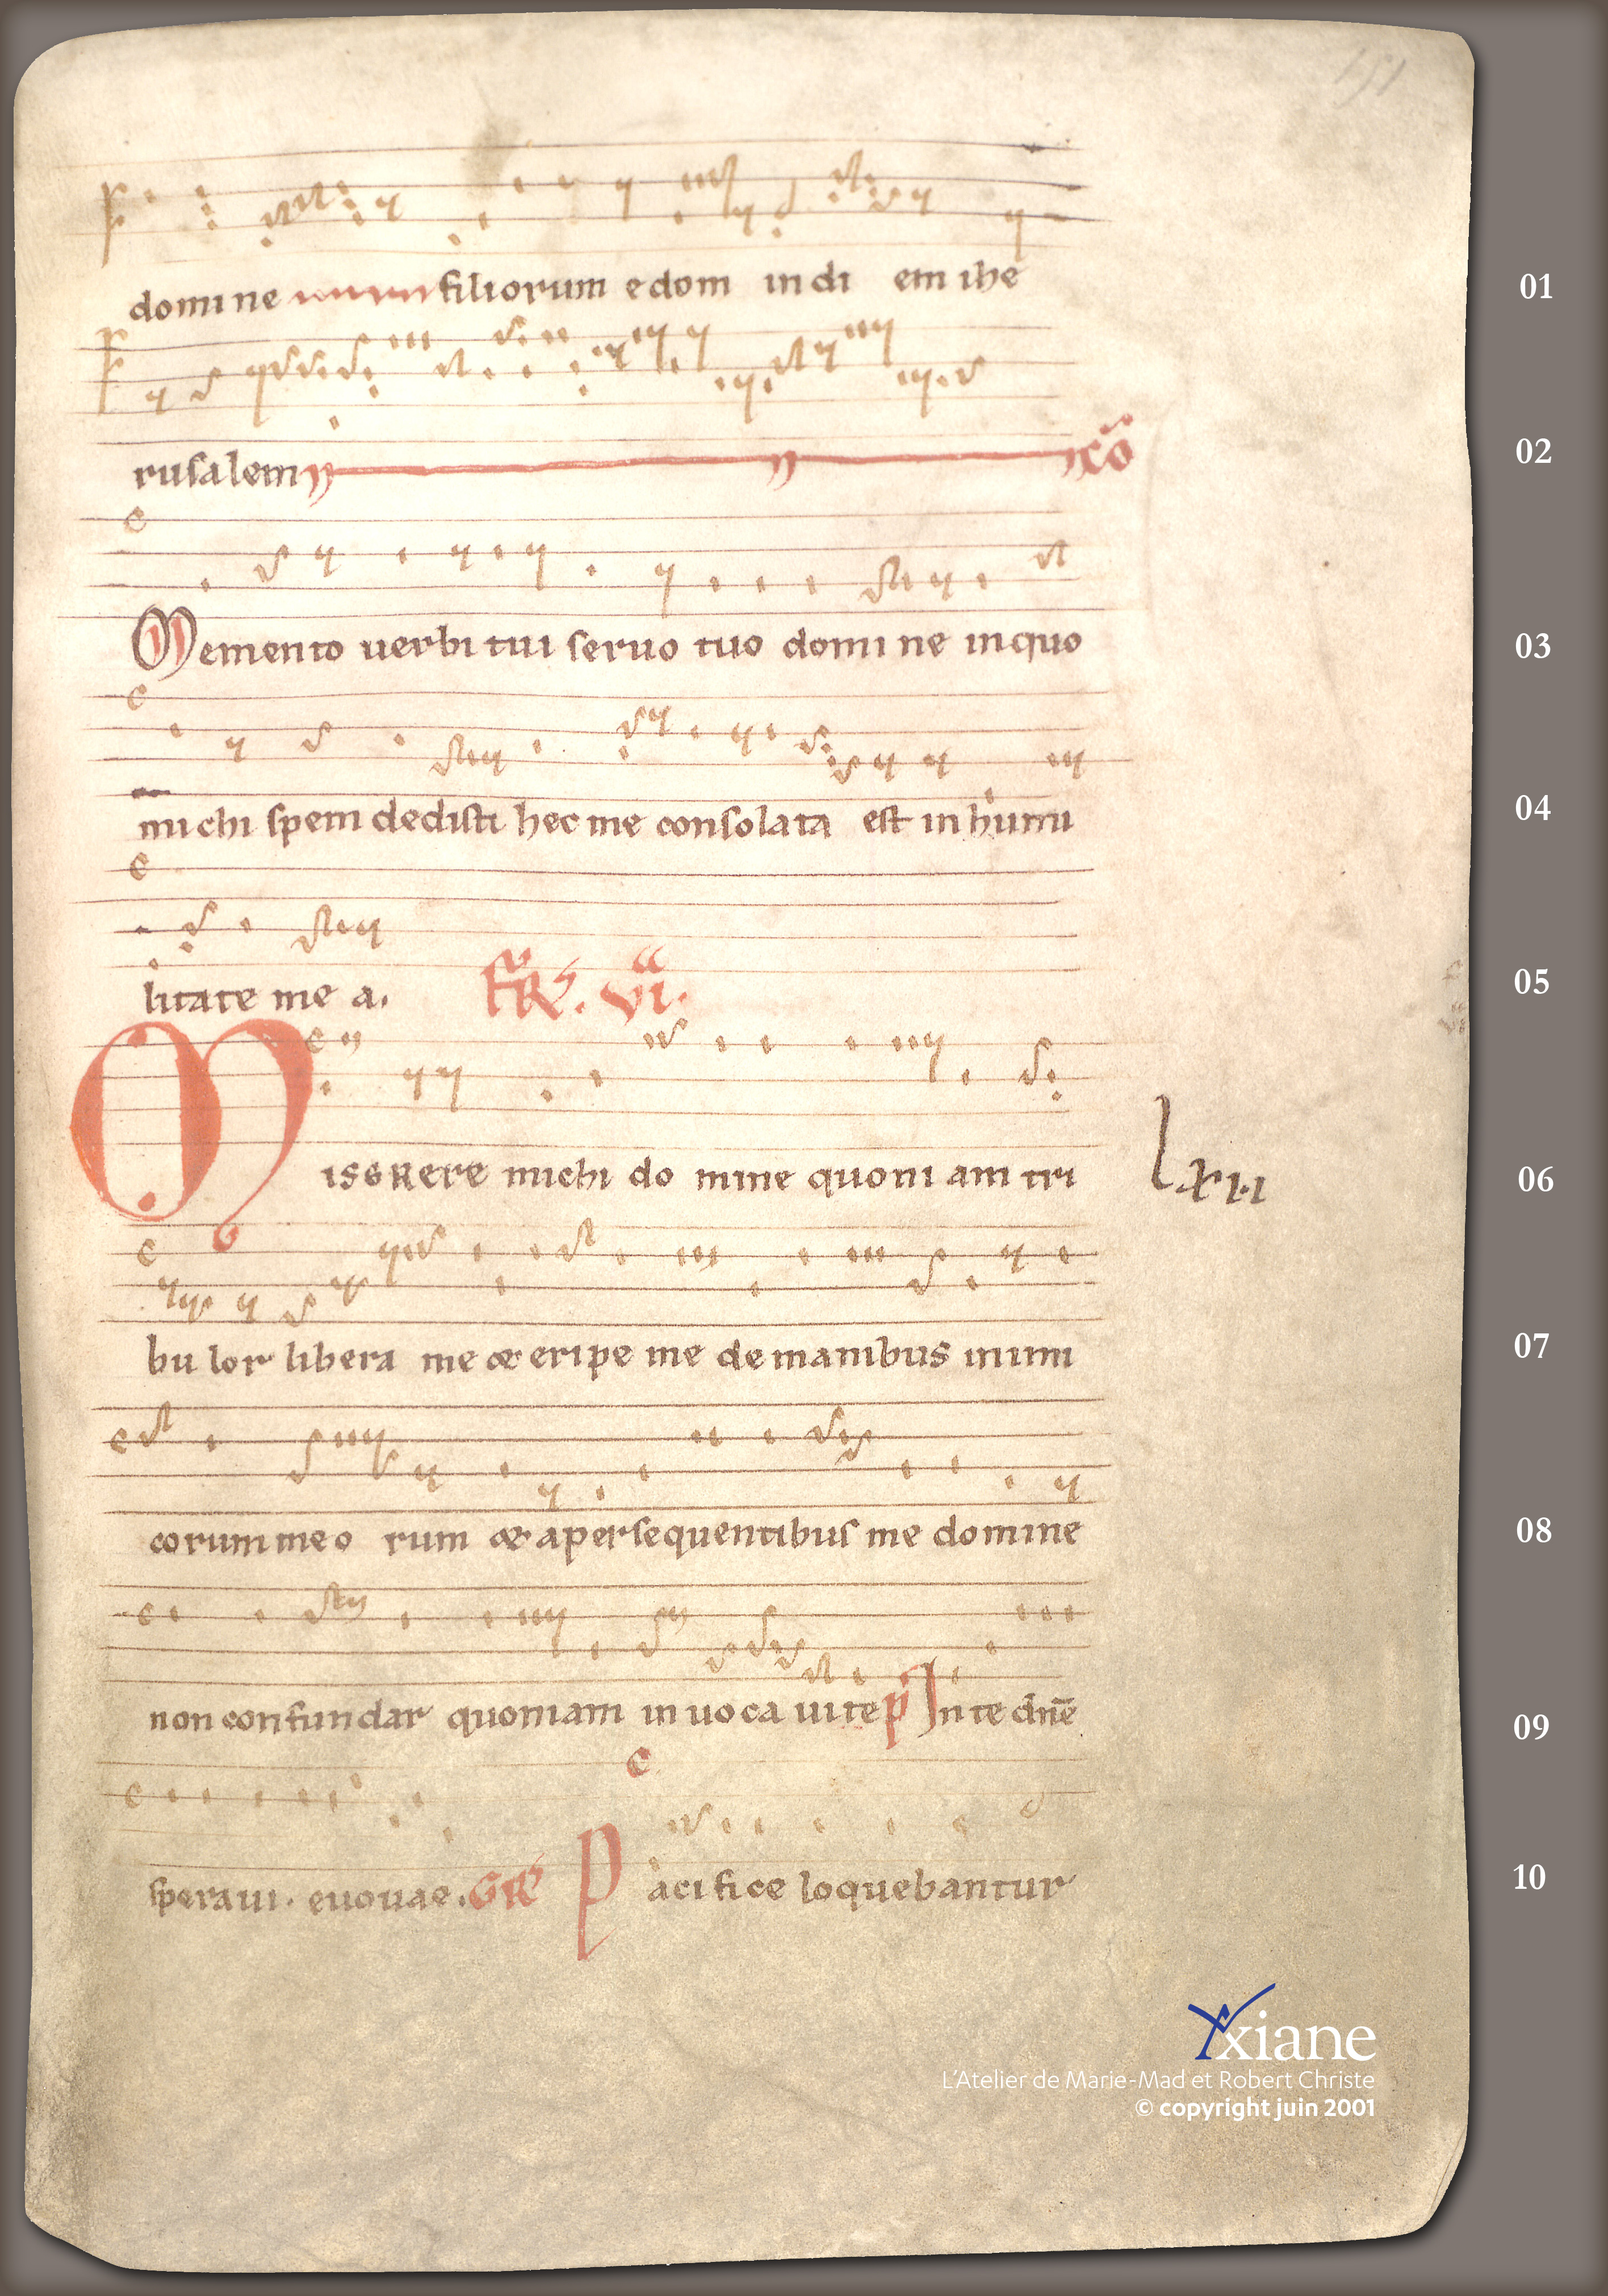 151
domine filiorum edom in di em ihe
01
rusalem cō
02
Memento uerbi tui seruo tuo domine inquo
03
michi spem dedisti hec me consolata est in humi
04
litate me a. FR̄. VI.
05
isERere michi do mine quoni am tri
lxii
06
bu lor libera me & eripe me de manibus inimi
07
corum meo rum & apersequentibus me domine
08
non confundar quoniam in uo ca ui te p̄ In te dn̄e
09
speraui. euouae. GR P aci fi ce loquebantur
10
Axiane
L'Atelier de Marie-Mad et Robert Christe
© copyright juin 2001